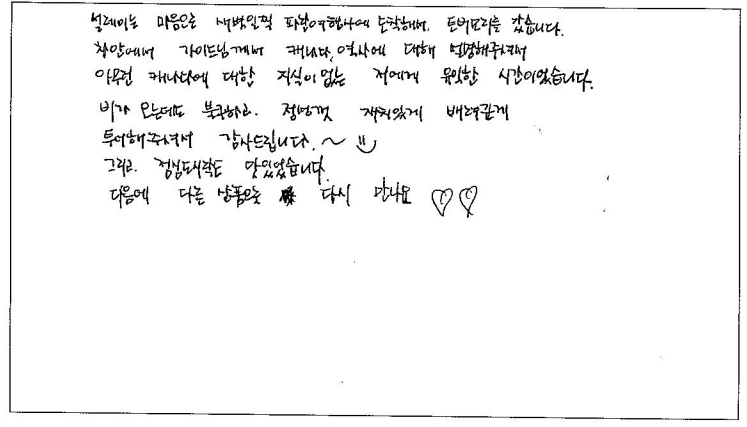 설레이는 마음으로 새벽일찍 파란여행사에 도착해서. 토버모리를 갔습니다.
차안에서 가이드님께서 캐나다, 역사에 대해 설명해주셔서
아무런 캐나다에 대한 지식이 없는 저에게 유익한 시간이었습니다.
비가 오는데도 불구하고. 정성껏 재치있게 배려깊게
투어해주셔서 감사드립니다.~
그리고. 점심도시락도 맛있었습니다.
다음에 다른 상품으로 다시 만나요 ♡♡